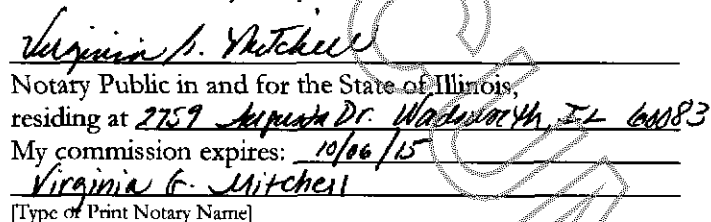 Virginia G. Mitchell
Notary Public in and for the State of Illinois,
residing at 2759 Augusta Dr. Wadsworth, IL 60083
My commission expires: 10/06/15
Virginia G. Mitchell
[Type or Print Notary Name]